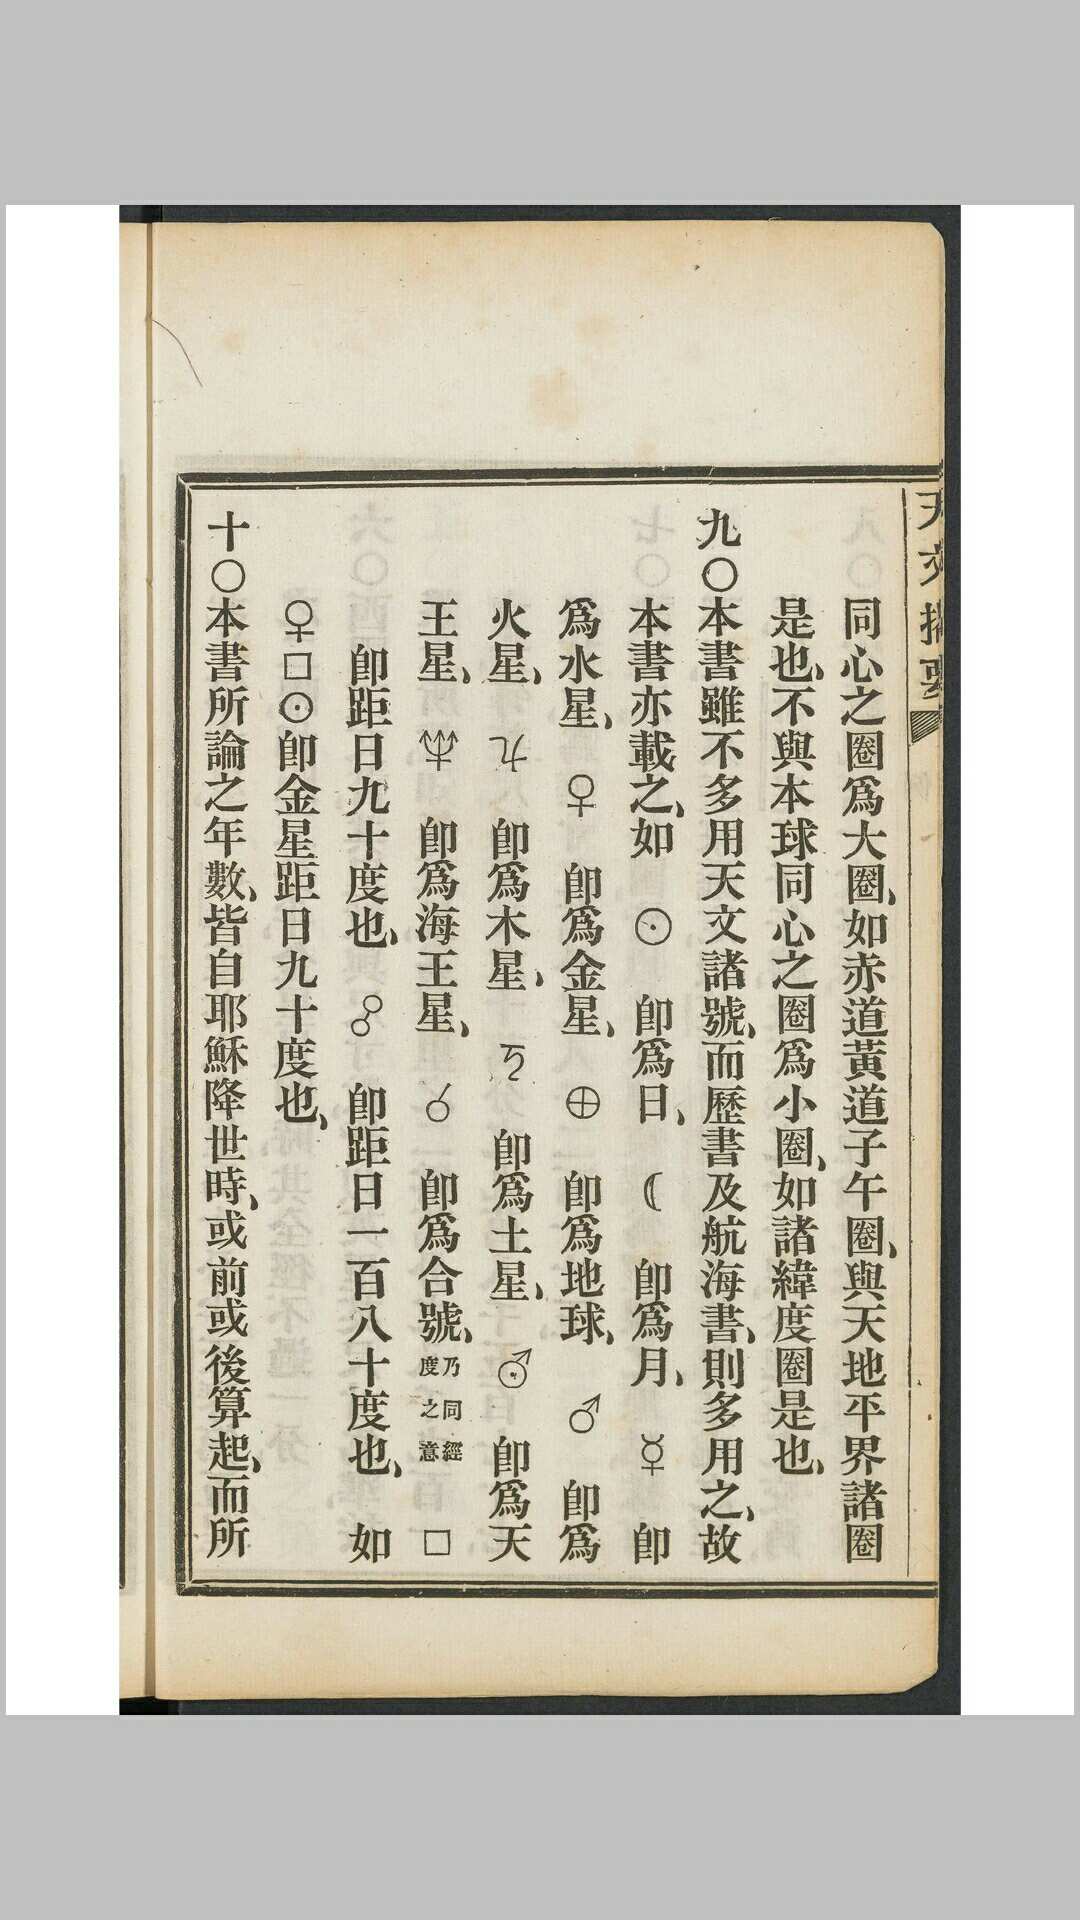 天文揭要
同心之圈爲大圈、如赤道黃道子午圈、與天地平界諸圈
是也、不與本球同心之圈爲小圈、如諸緯度圈是也、
九〇本書雖不多用天文諸號、而歷書及航海書、則多用之、故
本書亦載之、如 ☉ 卽爲日、 ☾ 卽爲月、 ☿ 卽
爲水星、 ♀ 卽爲金星、 ⊕ 卽爲地球、 ♂ 卽爲
火星、 ♃ 卽爲木星、 ♄ 卽爲土星、 ⛢ 卽爲天
王星、 ♆ 卽爲海王星、 ☌ 卽爲合號、乃同經度之意 □
卽距日九十度也、 ☍ 卽距日一百八十度也、 如
♀□☉卽金星距日九十度也、
十〇本書所論之年數、皆自耶穌降世時、或前或後算起、而所